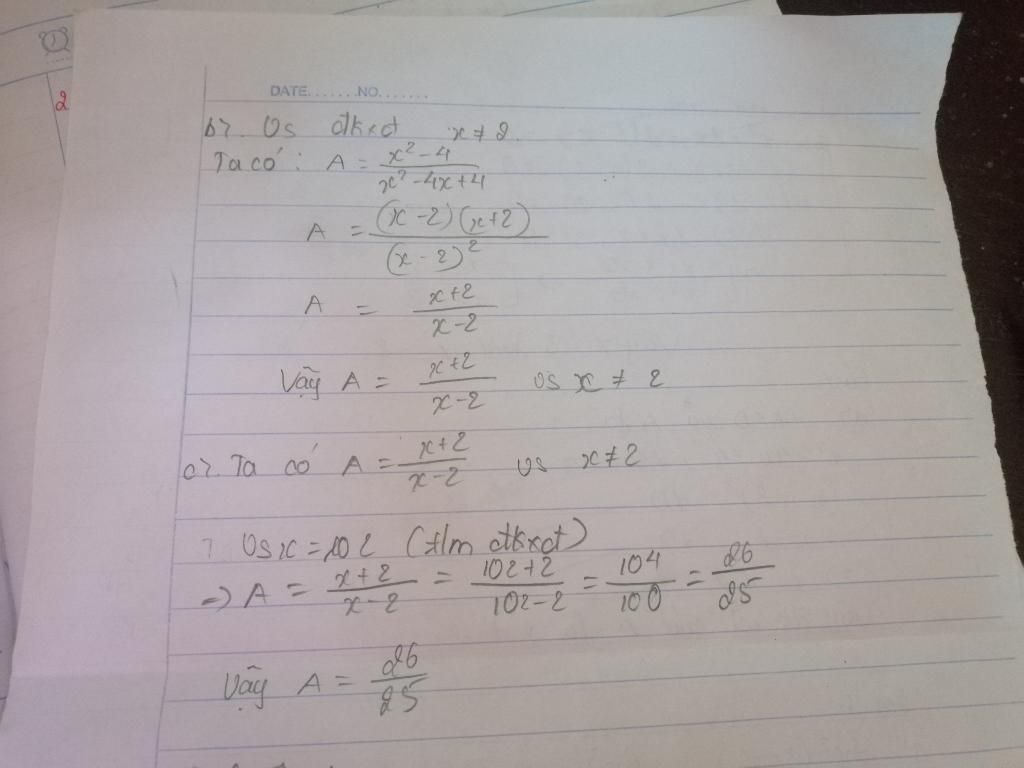 2
DATE.......NO.......
b). Vs đkxđ x ≠ 2.
Ta có: A = (x² - 4)/(x² - 4x + 4)
A = ((x - 2)(x + 2))/((x - 2)²)
A = (x + 2)/(x - 2)
Vậy A = (x + 2)/(x - 2) vs x ≠ 2
c). Ta có A = (x + 2)/(x - 2) vs x ≠ 2
Vs x = 102 (t/m đkxđ)
=> A = (x + 2)/(x - 2) = (102 + 2)/(102 - 2) = 104/100 = 26/25
Vậy A = 26/25